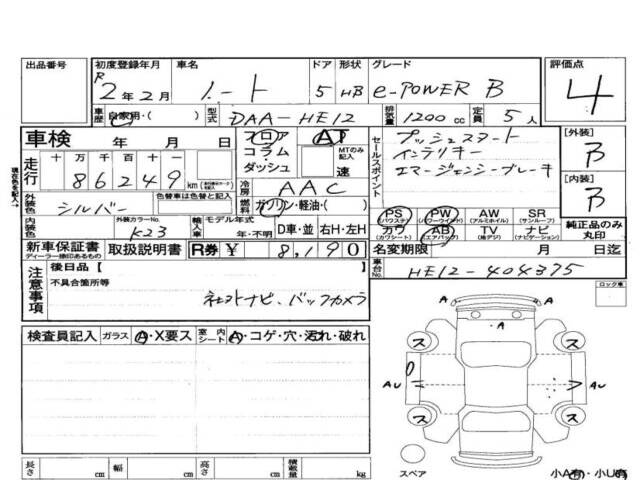 出品番号 初度登録年月 車名 ドア 形状 グレード 評価点
R 2年2月 ノート 5 HB e-POWER B 4
車歴 自家用・( ) 型式 DAA-HE12 排気量 1200 cc 定員 5 人
車検 年 月 日 フロア AT プッシュスタート [外装]
走行 十万千百十一 コラム・ダッシュ MTのみ記入 速 セールスポイント インテリキー B
86249 km エマージェンシーブレーキ
現在色を記入→ 冷房 AAC [内装]
外装色 シルバー 色替車は色替と記入 燃料 ガソリン・軽油・( ) B
PS (パワステ) PW (パワーウインド) AW (アルミホイル) SR (サンルーフ)
内装色 外装カラーNo. K23 輸入車 モデル年式 年・不明 D車・並 右H・左H カワ (カワシート) AB (エアバック) TV (地デジ) ナビ (ナビゲーション) 純正品のみ丸印
新車保証書 ディーラー捺印あるもの 取扱説明書 R券 ¥ 8,190 名変期限 月 日迄
注意事項 後日品【 】 車台No. HE12-404375
不具合箇所等 ロック車
社外ナビ、バックカメラ
検査員記入 ガラス A・X要ス 室内シート A・コゲ・穴・汚れ・破れ
A A
ス ス
AU AU
ス ス
スペア
長さ cm 幅 cm 高さ cm 積載量 kg
小A有・小U有